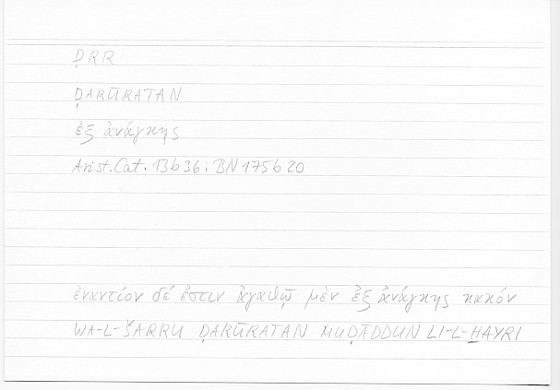 ḌRR
ḌARŪRATAN
ἐξ ἀνάγκης
Arist. Cat. 13b36; BN 175b20
ἐναντίον δέ ἐστιν ἀγαθῷ μὲν ἐξ ἀνάγκης κακόν
WA-L-ŠARRU ḌARŪRATAN MUḌĀDDUN LI-L-ḪAYRI